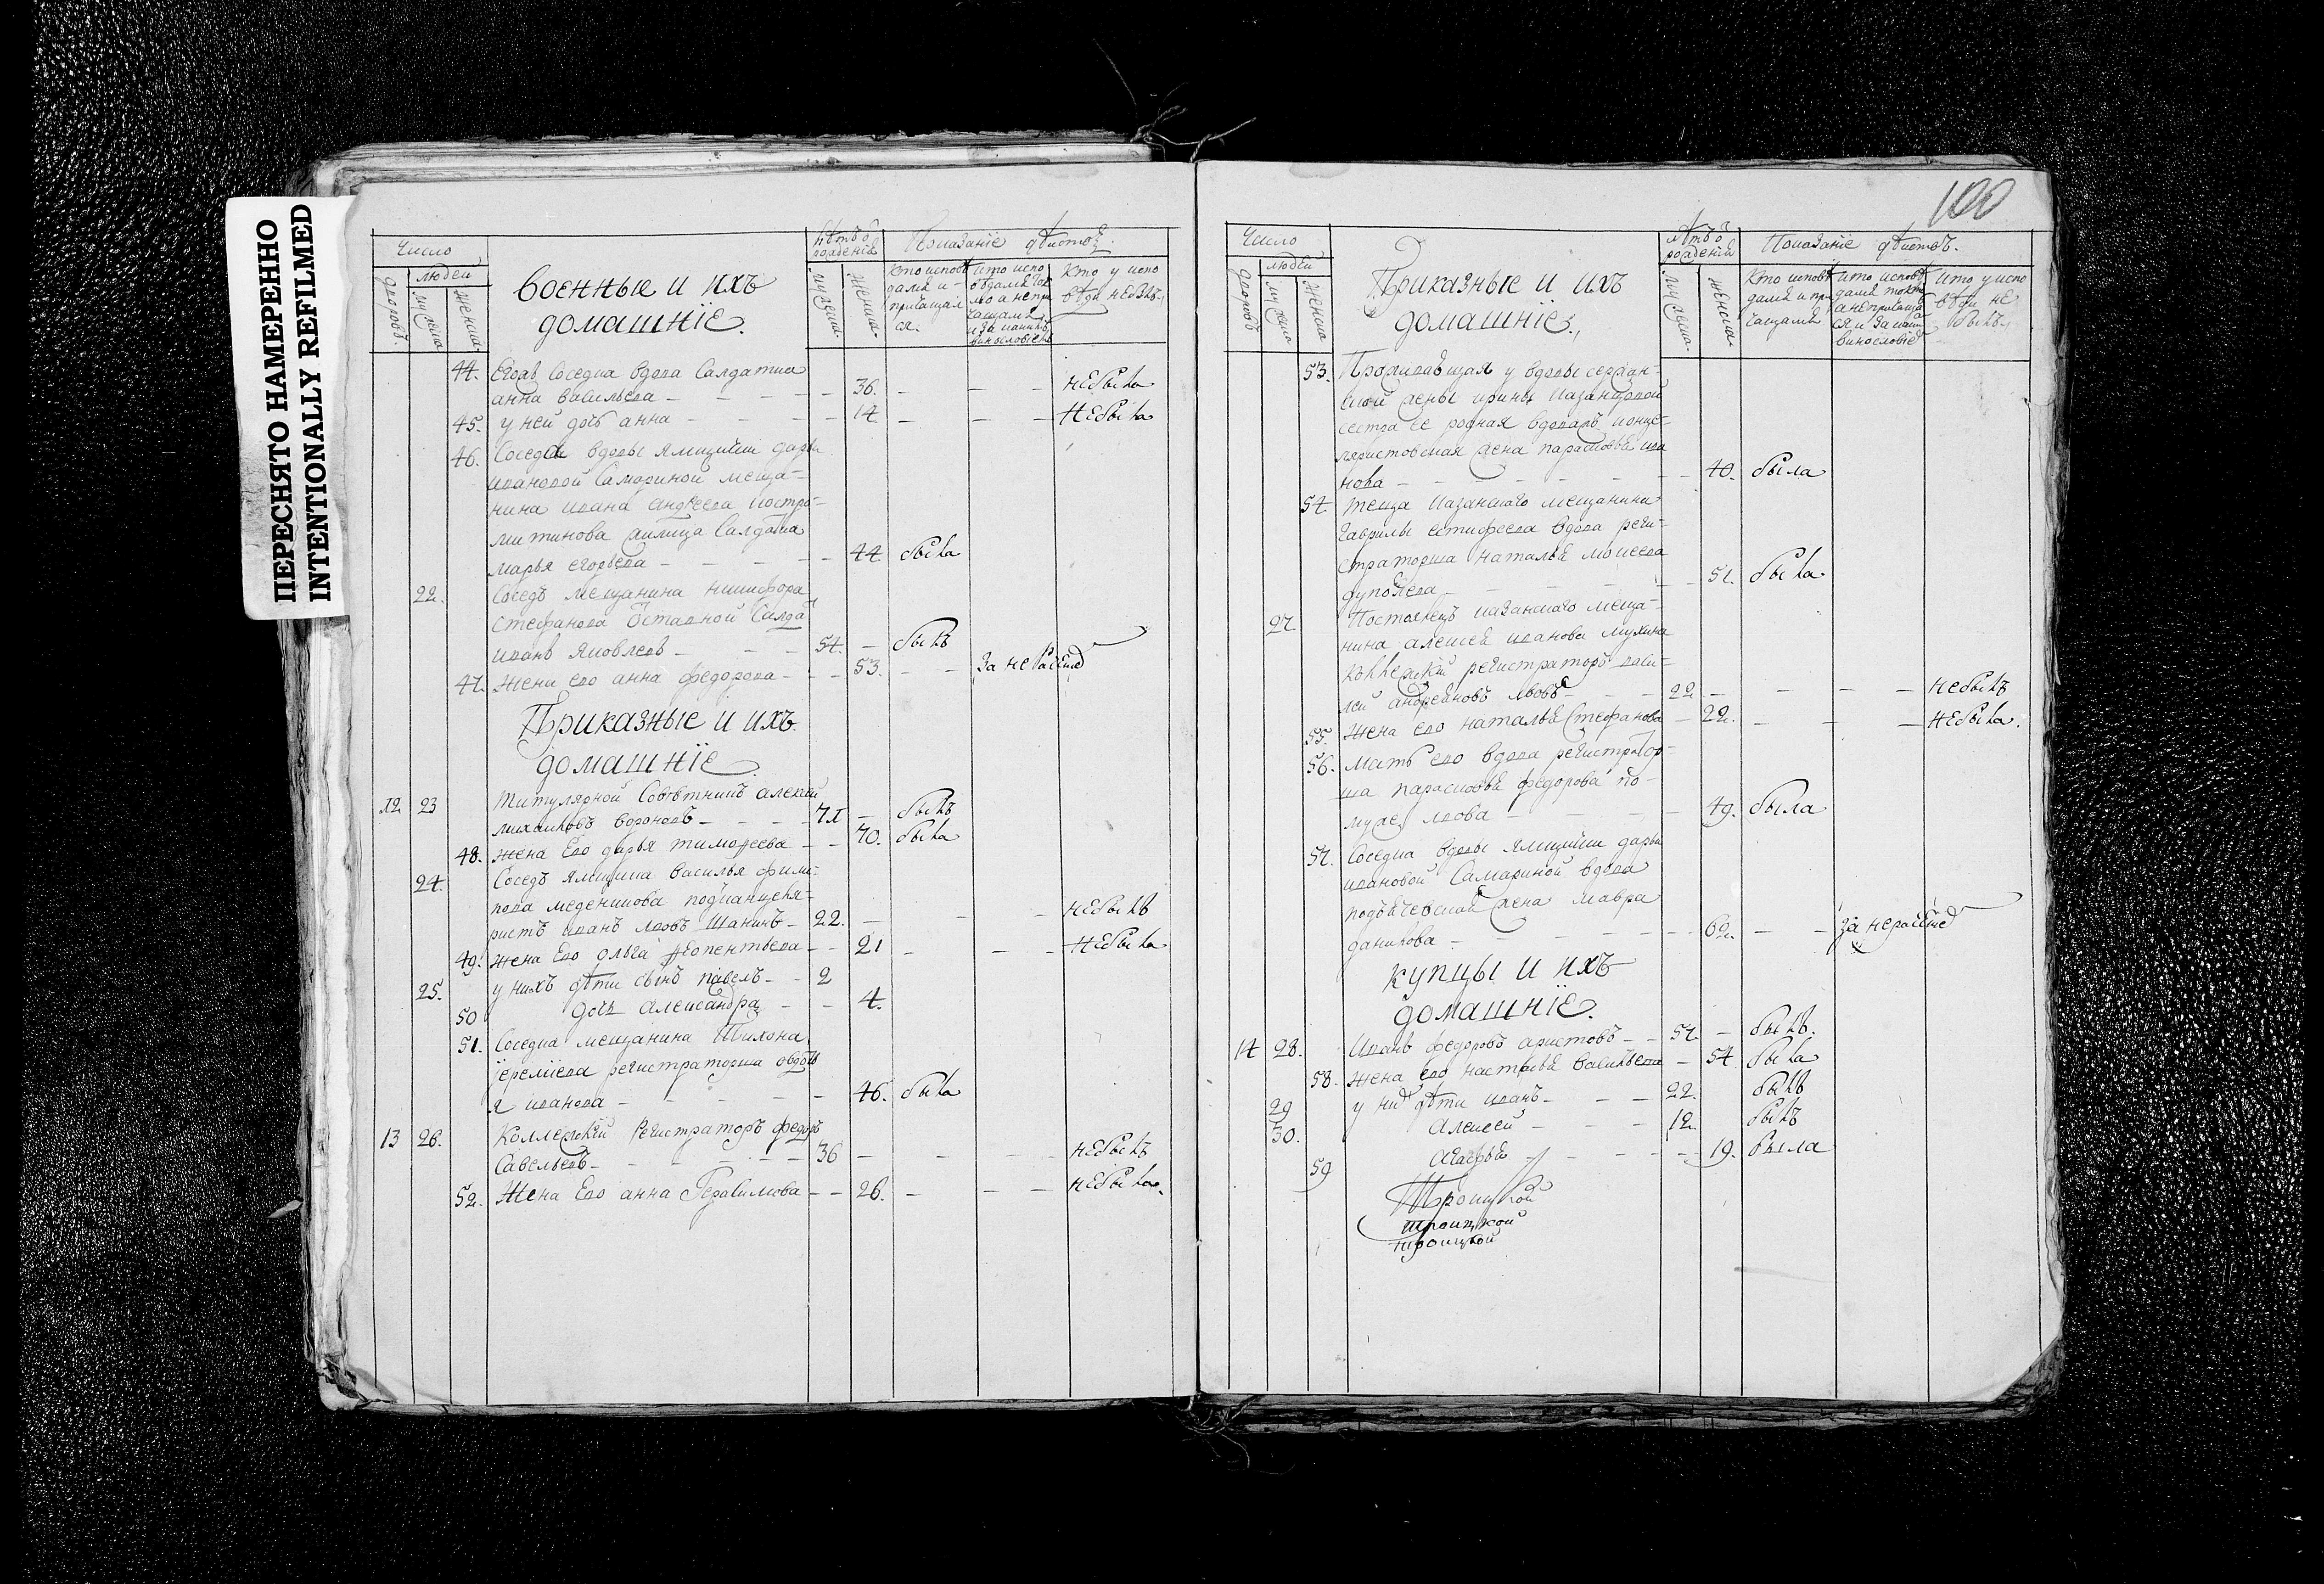 ПЕРЕСНЯТО НАМЕРЕННО
INTENTIONALLY REFILMED
Число
людей
дворовъ
мужеска
женска
военные и ихъ
домашнїе.
Лѣтъ ѿ
рожденїя
мужеска
женска
Показанїе дѣйствъ.
Кто исповѣ
дался и
причащал
ся.
Кто испо
вѣдался ток
мо а не при
чащался
и за какимъ
винословіемъ
Кто у испо
вѣди небылъ
44. Егожъ соседка вдова Салдатка
анна васильева 36. небыла
45. у ней дочь анна 14 небыла
46. Соседа вдовы ямщички дарьи
ивановой Самариной меща-
нина ивана андреева костро-
митинова жилица Салдатка
марья егорьева 44 была
22. Соседъ мещанина никифора
Стефанова Ѿставной Салда
иванъ Яковлевъ 54. былъ
47. Жена его анна федорова 53. За нерачение
Приказные и ихъ
домашнїе
12 23 Титулярной Советникъ алексей
михаиловъ вороновъ 71 былъ
48. жена Его дарья тимофеева 70. была
24. Соседъ ямщика василья фили-
пова меденцова подканцеля-
ристъ иванъ львовъ Щанинъ 22. небылъ
49. Жена Его Ольга терентьева 21 небыла
25. у нихъ дѣти сынъ павелъ 2
50 дочь александра 4.
51. Соседка мещанина Тихона
їеремїева регистраторша овдоть
я иванова 46. была
13 26. Коллежскїй Регистраторъ федоръ
Савельевъ 36 небылъ
52. Жена Его анна Герасимова 26. небыла
100
Число
людей
дворовъ
мужеска
женска
Приказные и ихъ
домашнїе.
лѣтъ ѿ
рожденїя
мужеска
женска
Показанїе дѣйствъ.
Кто исповѣ
дался и при
чащался
Кто исповѣ
дался токмо
а не причаща
ся и за каки
винословіе
Кто у испо
вѣди не
былъ
53. Проживающая у вдовы сержан-
ской жены ирины казанцовой
сестра ее родная вдоваяъ конце-
ляристовская жена парасковья ива
нова 40. была
54. Теща казанскаго мещанина
Гаврилы естифеева вдова реги-
страторша наталья моисеева
51. была
27. Постоялецъ казанскаго меща-
нина алексея иванова мухина
коллежскїй регистраторъ васи-
лей андрѣяновъ львовъ 22 небылъ
55. Жена его наталья Стефанова 22. небыла.
56. Мать его вдова регистратор-
ша парасковья федорова по
муже львова 49. была
57. Соседка вдовы ямщички дарьи
ивановой Самариной вдова
подьячевская жена мавра
данилова 62. за нерачение
купцы и ихъ
домашнїе.
14 28. Иванъ федоровъ аристовъ 57. былъ.
58. жена его настасья васильева 54 была
29 у них дѣти иванъ 22. былъ
30. Алексей 12. былъ
59 Агафья 19. была
Троицкой
троицкой
троицкой